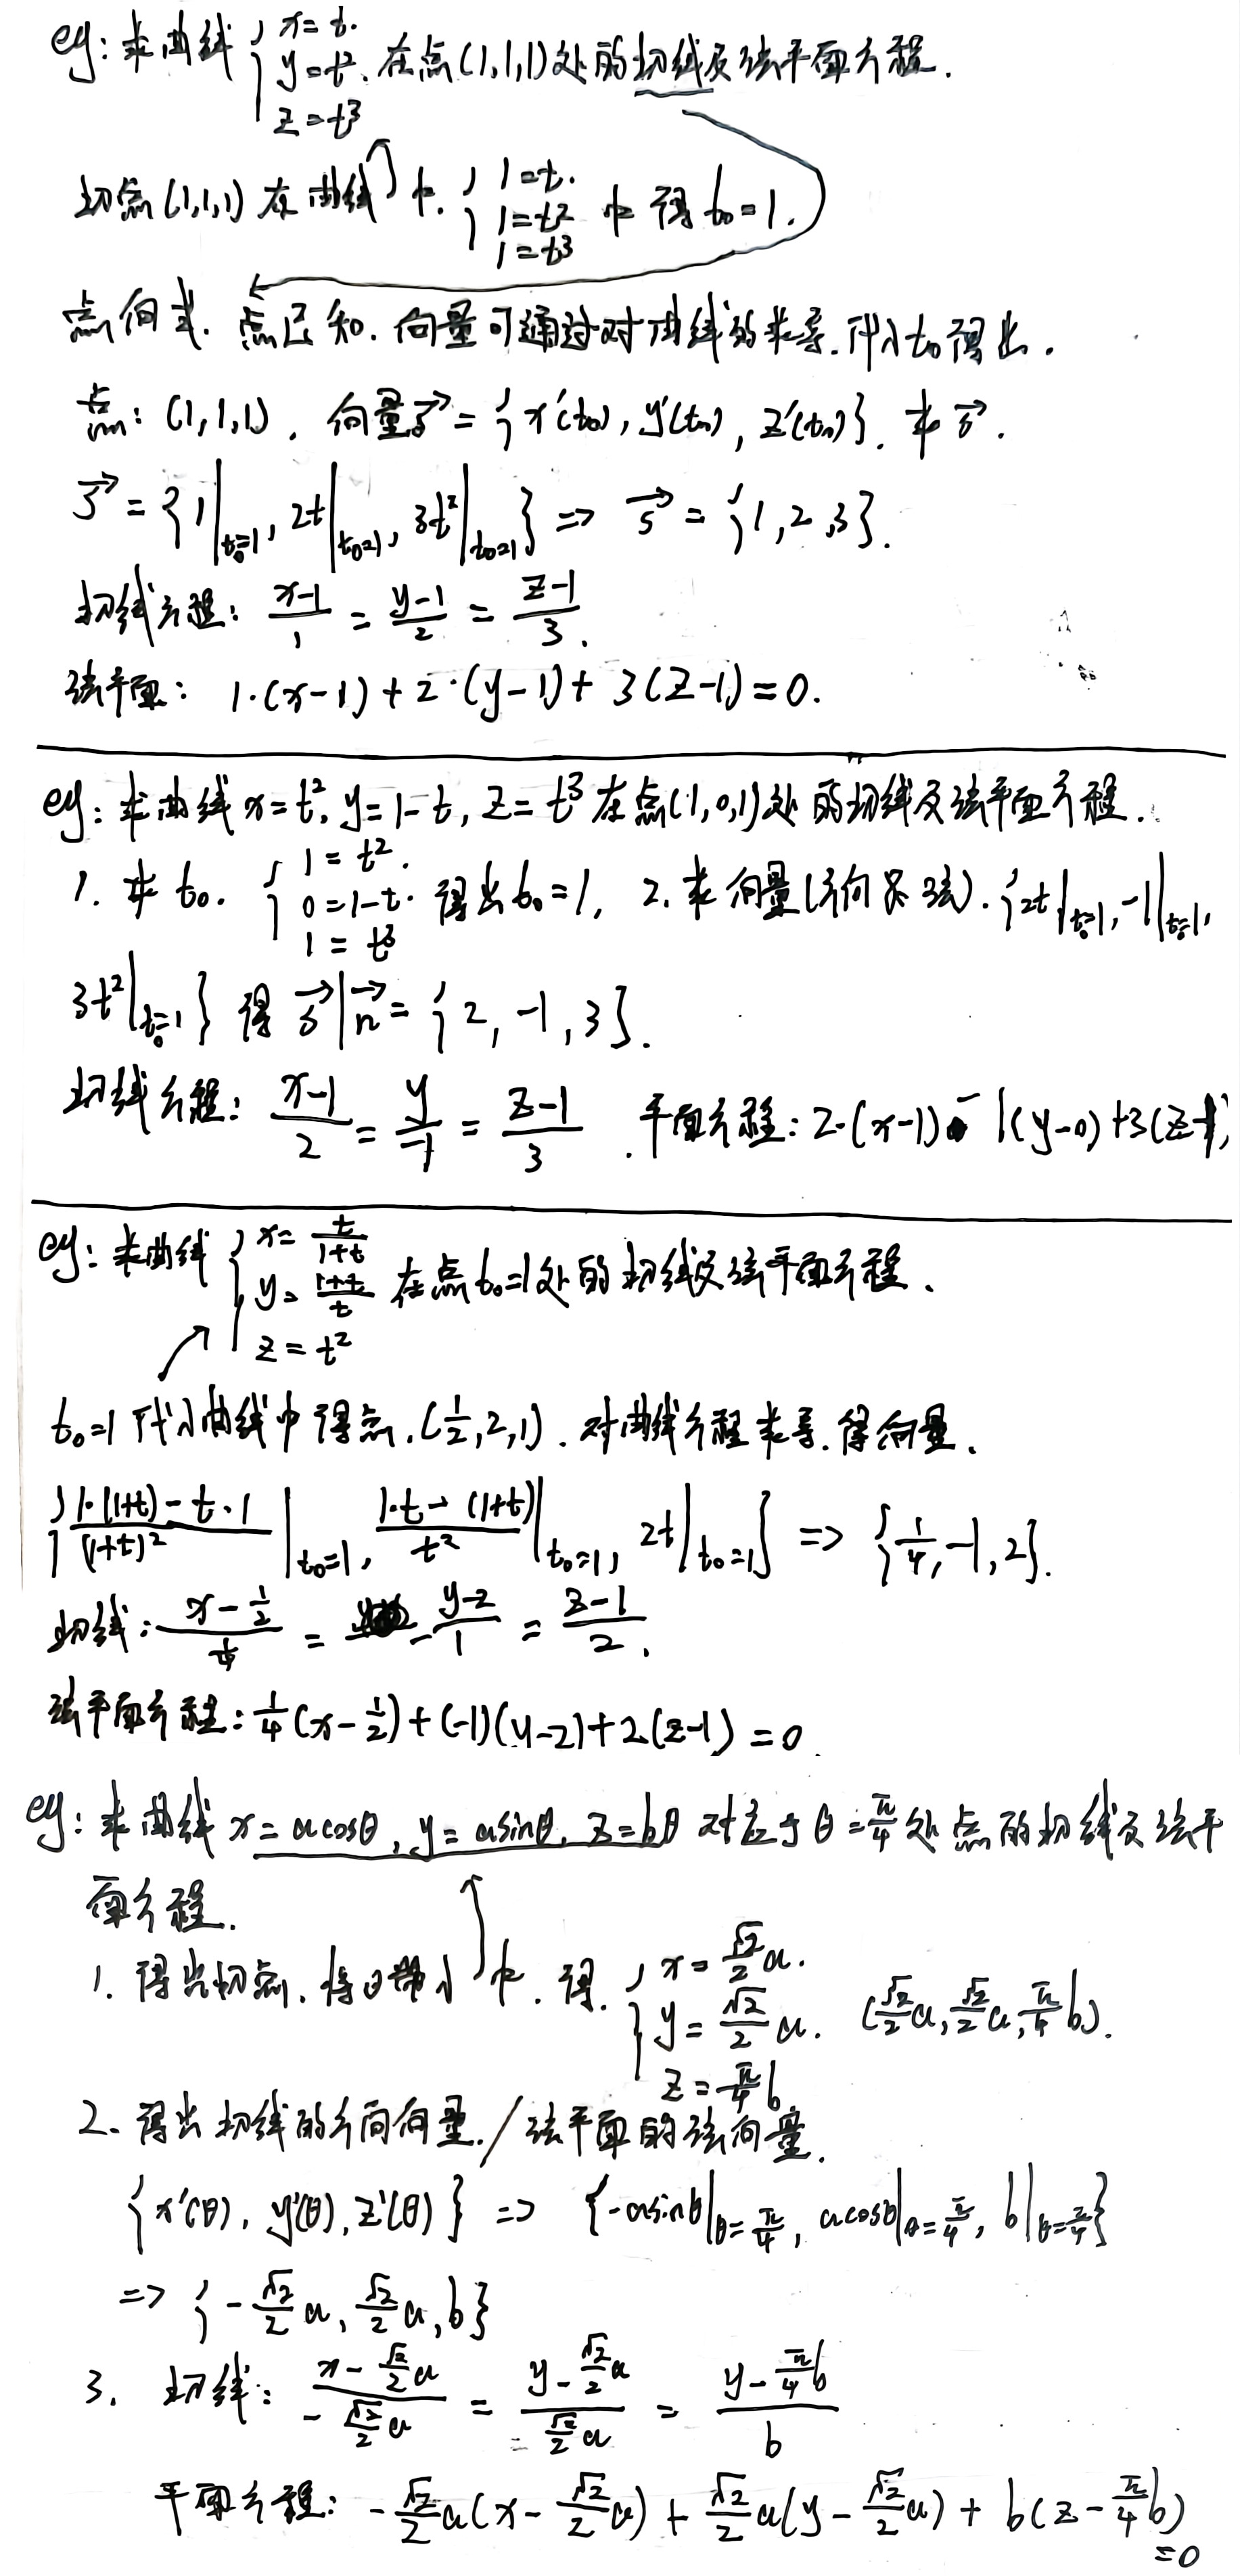 eg: 求曲线 { x=t. y=t². z=t³ 在点(1,1,1)处的切线及法平面方程.
切点(1,1,1)在曲线中. { 1=t. 1=t² 1=t³ 中得 t₀=1.
点向式. 点已知. 向量可通过对曲线的求导. 代入t₀得出.
点: (1,1,1), 向量s⃗ = {x'(t₀), y'(t₀), z'(t₀)}. 求s⃗.
s⃗ = {1|t₀=1, 2t|t₀=1, 3t²|t₀=1} => s⃗ = {1,2,3}.
切线方程: (x-1)/1 = (y-1)/2 = (z-1)/3.
法平面: 1·(x-1)+2·(y-1)+3(z-1)=0.
eg: 求曲线x=t², y=1-t, z=t³在点(1,0,1)处的切线及法平面方程.
1. 求t₀. { 1=t². 0=1-t. 1=t³ 得出t₀=1, 2. 求向量(方向及法). {2t|t₀=1, -1|t₀=1,
3t²|t₀=1} 得 s⃗|n⃗ = {2,-1,3}.
切线方程: (x-1)/2 = y/-1 = (z-1)/3. 平面方程: 2·(x-1) - 1(y-0)+3(z-1)
eg: 求曲线 { x=t/(1+t) y=(1+t)/t z=t² 在点t₀=1处的切线及法平面方程.
t₀=1代入曲线中得点.(1/2,2,1). 对曲线方程求导. 得向量.
{(1·(1+t)-t·1)/(1+t)²|t₀=1, (1·t-(1+t))/t²|t₀=1, 2t|t₀=1} => {1/4,-1,2}.
切线: (x-1/2)/(1/4) = -(y-2)/1 = (z-1)/2.
法平面方程: 1/4(x-1/2)+(-1)(y-2)+2(z-1)=0.
eg: 求曲线x=acosθ, y=asinθ, z=bθ对应于θ=π/4处点的切线及法平
面方程.
1. 得出切点. 将θ带入中. 得. { x=√2/2 a. y=√2/2 a. z=π/4 b (√2/2 a, √2/2 a, π/4 b).
2. 得出切线的方向向量./法平面的法向量.
{x'(θ), y'(θ), z'(θ)} => {-asinθ|θ=π/4, acosθ|θ=π/4, b|θ=π/4}
=> {-√2/2 a, √2/2 a, b}
3. 切线: (x-√2/2 a)/(-√2/2 a) = (y-√2/2 a)/(√2/2 a) = (y-π/4 b)/b
平面方程: -√2/2 a(x-√2/2 a) + √2/2 a(y-√2/2 a) + b(z-π/4 b)
=0